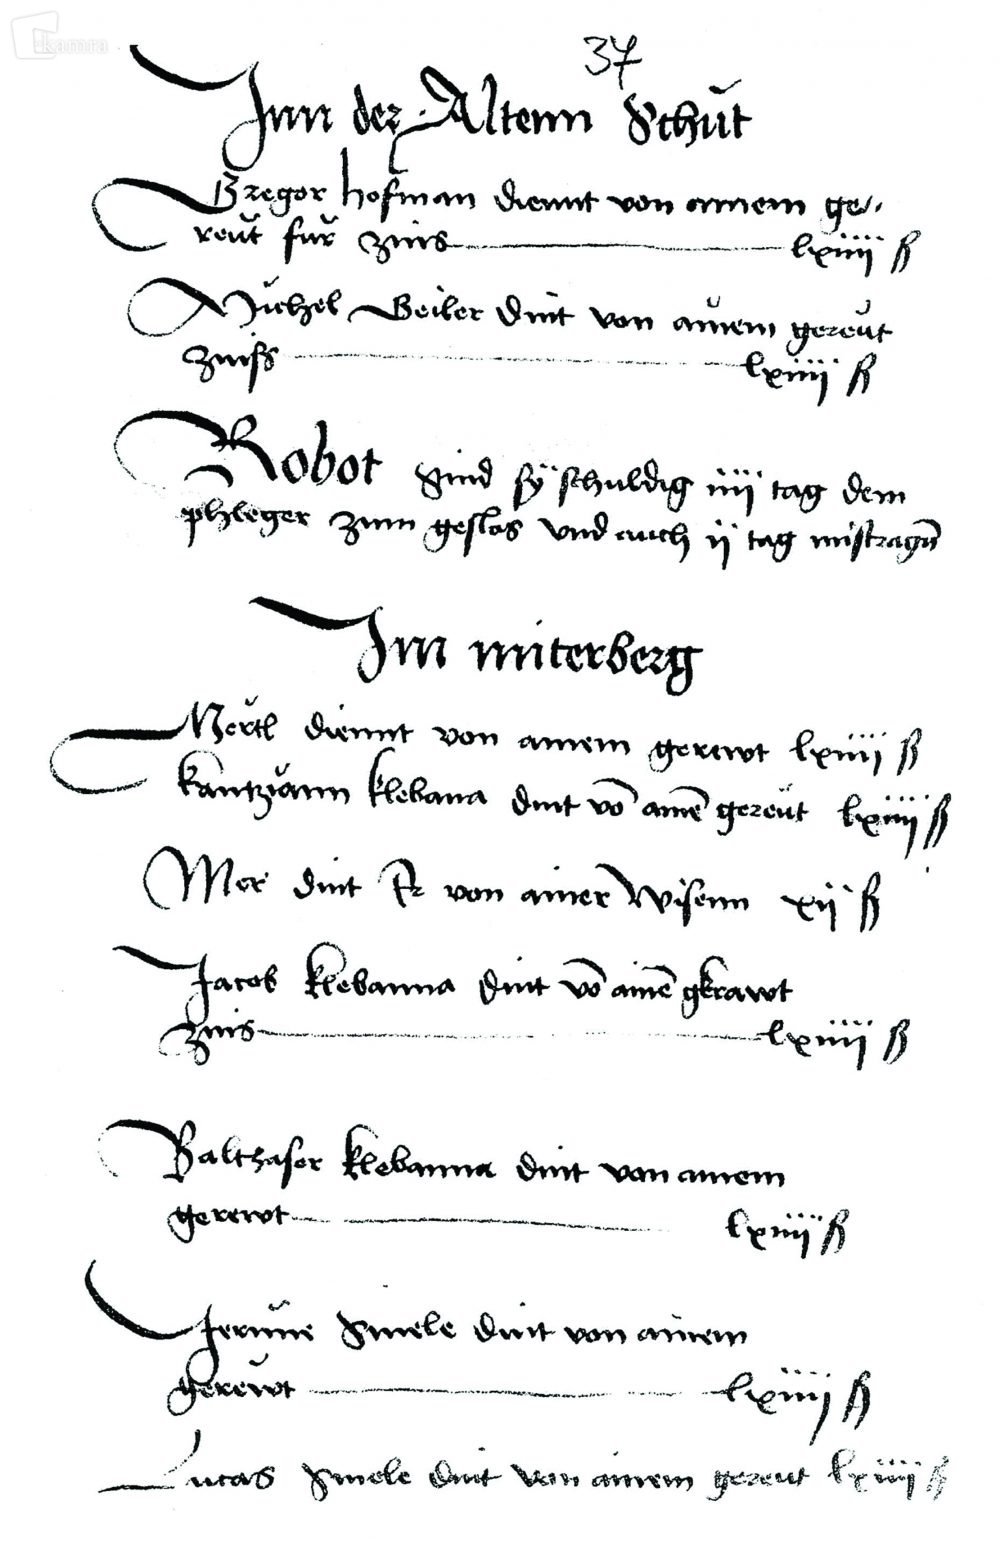 kamra
37
Inn der Alltenn Schut
Gregor hofman diennt von ainem ge„
reut fur zins lxiiii ₰
Michel Beiler dint von ainem gereut
zinss lxiiii ₰
Robot sind sÿ schuldig iiii tag dem
phleger zum geslos vnd auch ii tag mistragn
Im miterberg
diennt von ainem gerewt lxiiii ₰
klebana dint vo aine gereut lxiiii ₰
Mer dint Er von ainer Wisenn xii ₰
Jacob klebanna dint vo aine gekrawt
zins lxiiii ₰
Balthaser klebanna dint von ainem
gerewt lxiiii ₰
Smele dint von ainem
gerewt lxiiii ₰
Lucas Smele dint von ainem gereut lxiiii ₰